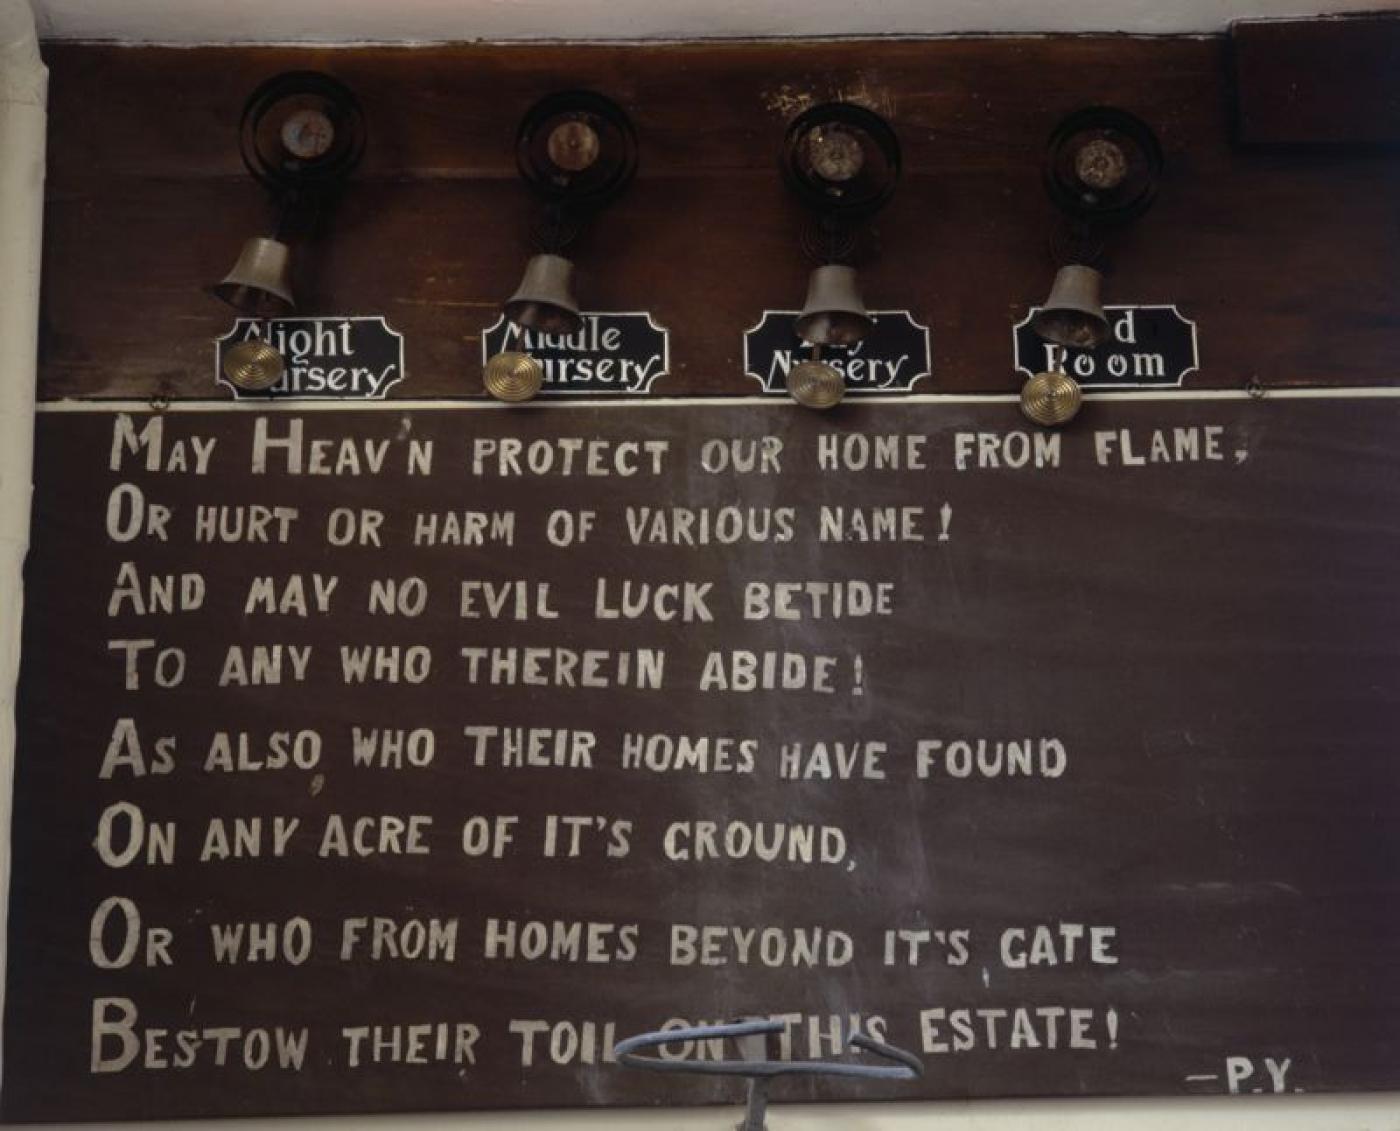 Night Middle Nursery
Nursery Nursery Nursery Room
MAY HEAV'N PROTECT OUR HOME FROM FLAME,
OR HURT OR HARM OF VARIOUS NAME!
AND MAY NO EVIL LUCK BETIDE
TO ANY WHO THEREIN ABIDE!
AS ALSO, WHO THEIR HOMES HAVE FOUND
ON ANY ACRE OF IT'S GROUND,
OR WHO FROM HOMES BEYOND IT'S GATE
BESTOW THEIR TOIL ON THIS ESTATE!
—P.Y.